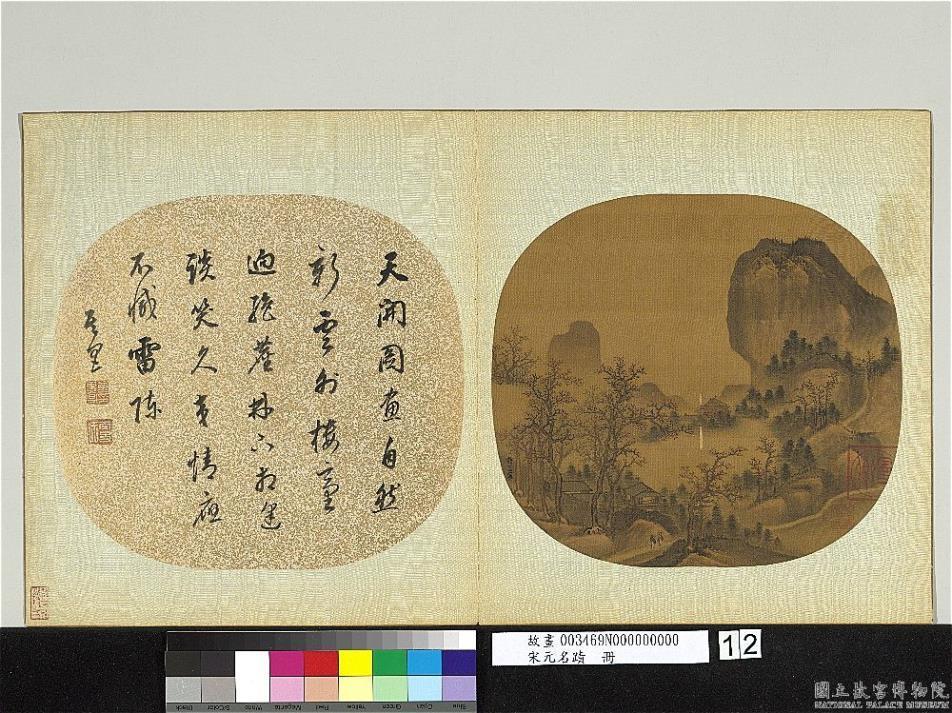 天開圖畫自然
新雲外樓臺
迥絶塵林下相逢
談笑久交情應
不減雷陳
故畫 003469N000000000
宋元名蹟 冊
12
Blue Cyan Green Yellow Red Magenta White 3/Color Black
國立故宮博物院
NATIONAL PALACE MUSEUM